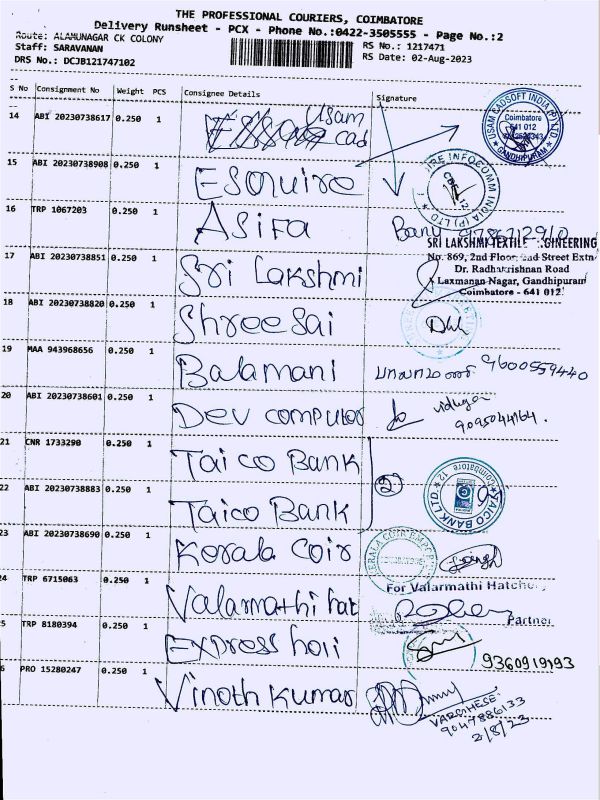 THE PROFESSIONAL COURIERS, COIMBATORE
Delivery Runsheet - PCX - Phone No.:0422-3505555 - Page No.:2
Route: ALAMUNAGAR CK COLONY
RS No.: 1217471
Staff: SARAVANAN
RS Date: 02-Aug-2023
DRS No.: DCJB121747102
S No Consignment No Weight PCS Consignee Details Signature
14 ABI 20230738617 0.250 1 Usam cad
USAM CADSOFT INDIA (P) LTD
Coimbatore
641 012
GANDHIPURAM
15 ABI 20230738908 0.250 1 Esquire
INFOCOMM INDIA (P) LTD
CBE-12
16 TRP 1067203 0.250 1 Asifa
17 ABI 20230738851 0.250 1 Sri Lakshmi
SRI LAKSHMI TEXTILE ENGINEERING
No. 869, 2nd Floor, 2nd Street Extn
Dr. Radhakrishnan Road
Laxmanan Nagar, Gandhipuram
Coimbatore - 641 012
18 ABI 20230738820 0.250 1 Shree sai
19 MAA 943968656 0.250 1 Balamani 9600559440
20 ABI 20230738601 0.250 1 Dev computer
9095044164.
21 CNR 1733290 0.250 1 Taico Bank
2
22 ABI 20230738883 0.250 1 Taico Bank
TAICO BANK LTD
Coimbatore 12
23 ABI 20230738690 0.250 1 Kerala Coir
KERALA COIR
24 TRP 6715063 0.250 1 Valarmathi hat
For Valarmathi Hatchery
Partner
5 TRP 8180394 0.250 1 Express holi
9360919193
6 PRO 15280247 0.250 1 Vinoth Kumar
VARGHESE
9047886133
2/8/23